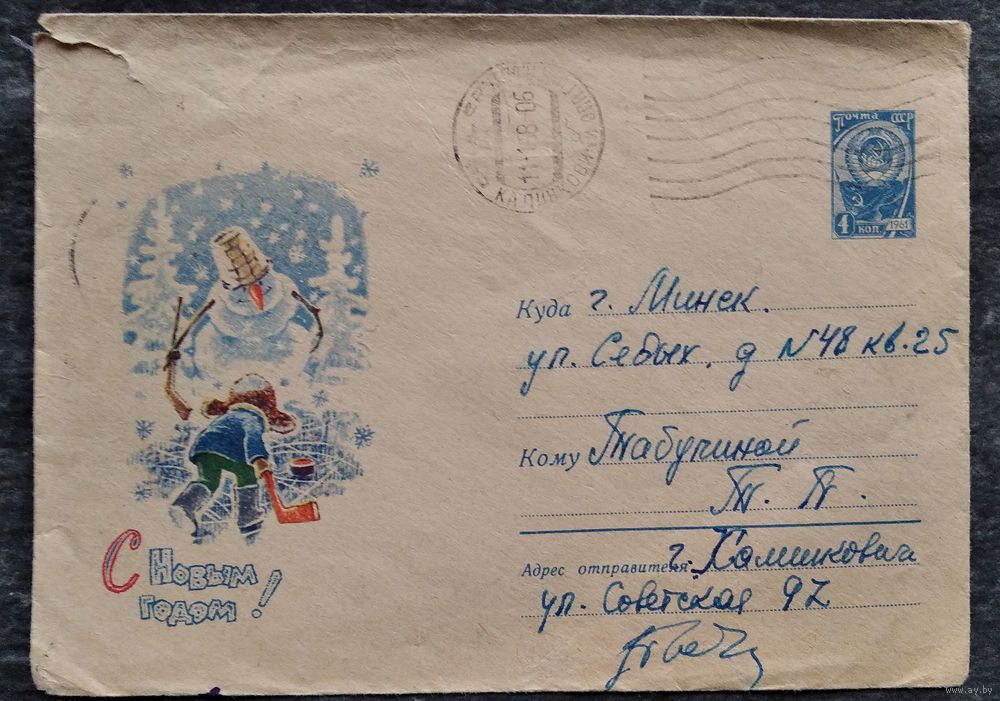 11-1 8-06
КАЛИНКОВИЧИ
Почта СССР
4 коп. 1961
Куда г. Минск.
ул. Седых, д №48 кв. 25
Кому Табучиной
Т. П.
Адрес отправителя: г. Калинковичи
ул. Советская 97
С Новым
годом!
www.ay.by